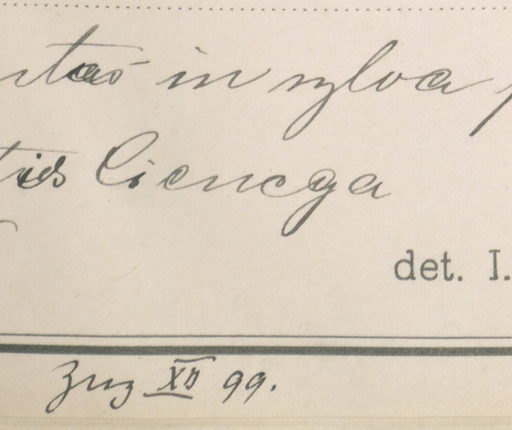 ntas in sylva
tis Cienega
det. I.
XII 99.